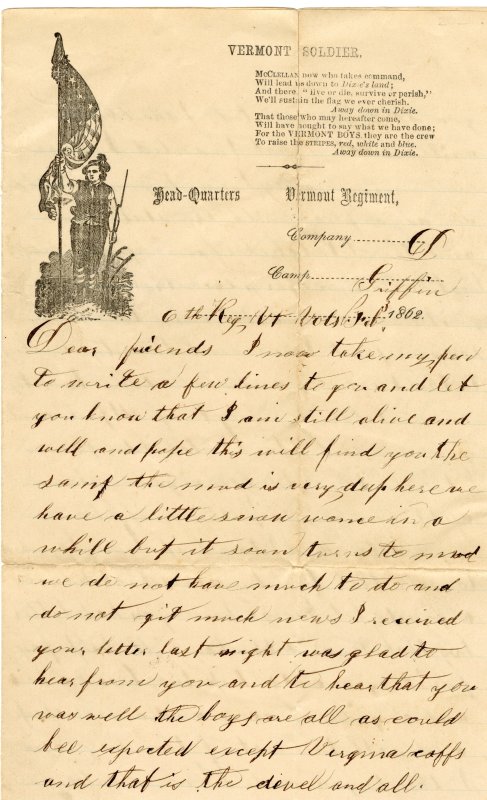 VERMONT SOLDIER.
McCLELLAN now who takes command,
Will lead us down to Dixie's land;
And there "live or die, survive or perish,"
We'll sustain the flag we ever cherish.
Away down in Dixie.
That those who may hereafter come,
Will have nought to say what we have done;
For the VERMONT BOYS, they are the crew
To raise the STRIPES, red, white and blue.
Away down in Dixie.
Head-Quarters Vermont Regiment,
Company D
Camp Griffin
6th Reg Vt Vols Feb. 1862.
Dear friends I now take my pen
to write a few lines to you and let
you know that I am still alive and
well and hope this will find you the
same the mud is very deep here we
have a little snow wonce in a
whill but it soon turns to mud
we do not have much to do and
do not git much news I received
your letter last night was glad to
hear from you and to hear that you
was well the boys are all as could
bee expected except Virgina coffs
and that is the devel and all.